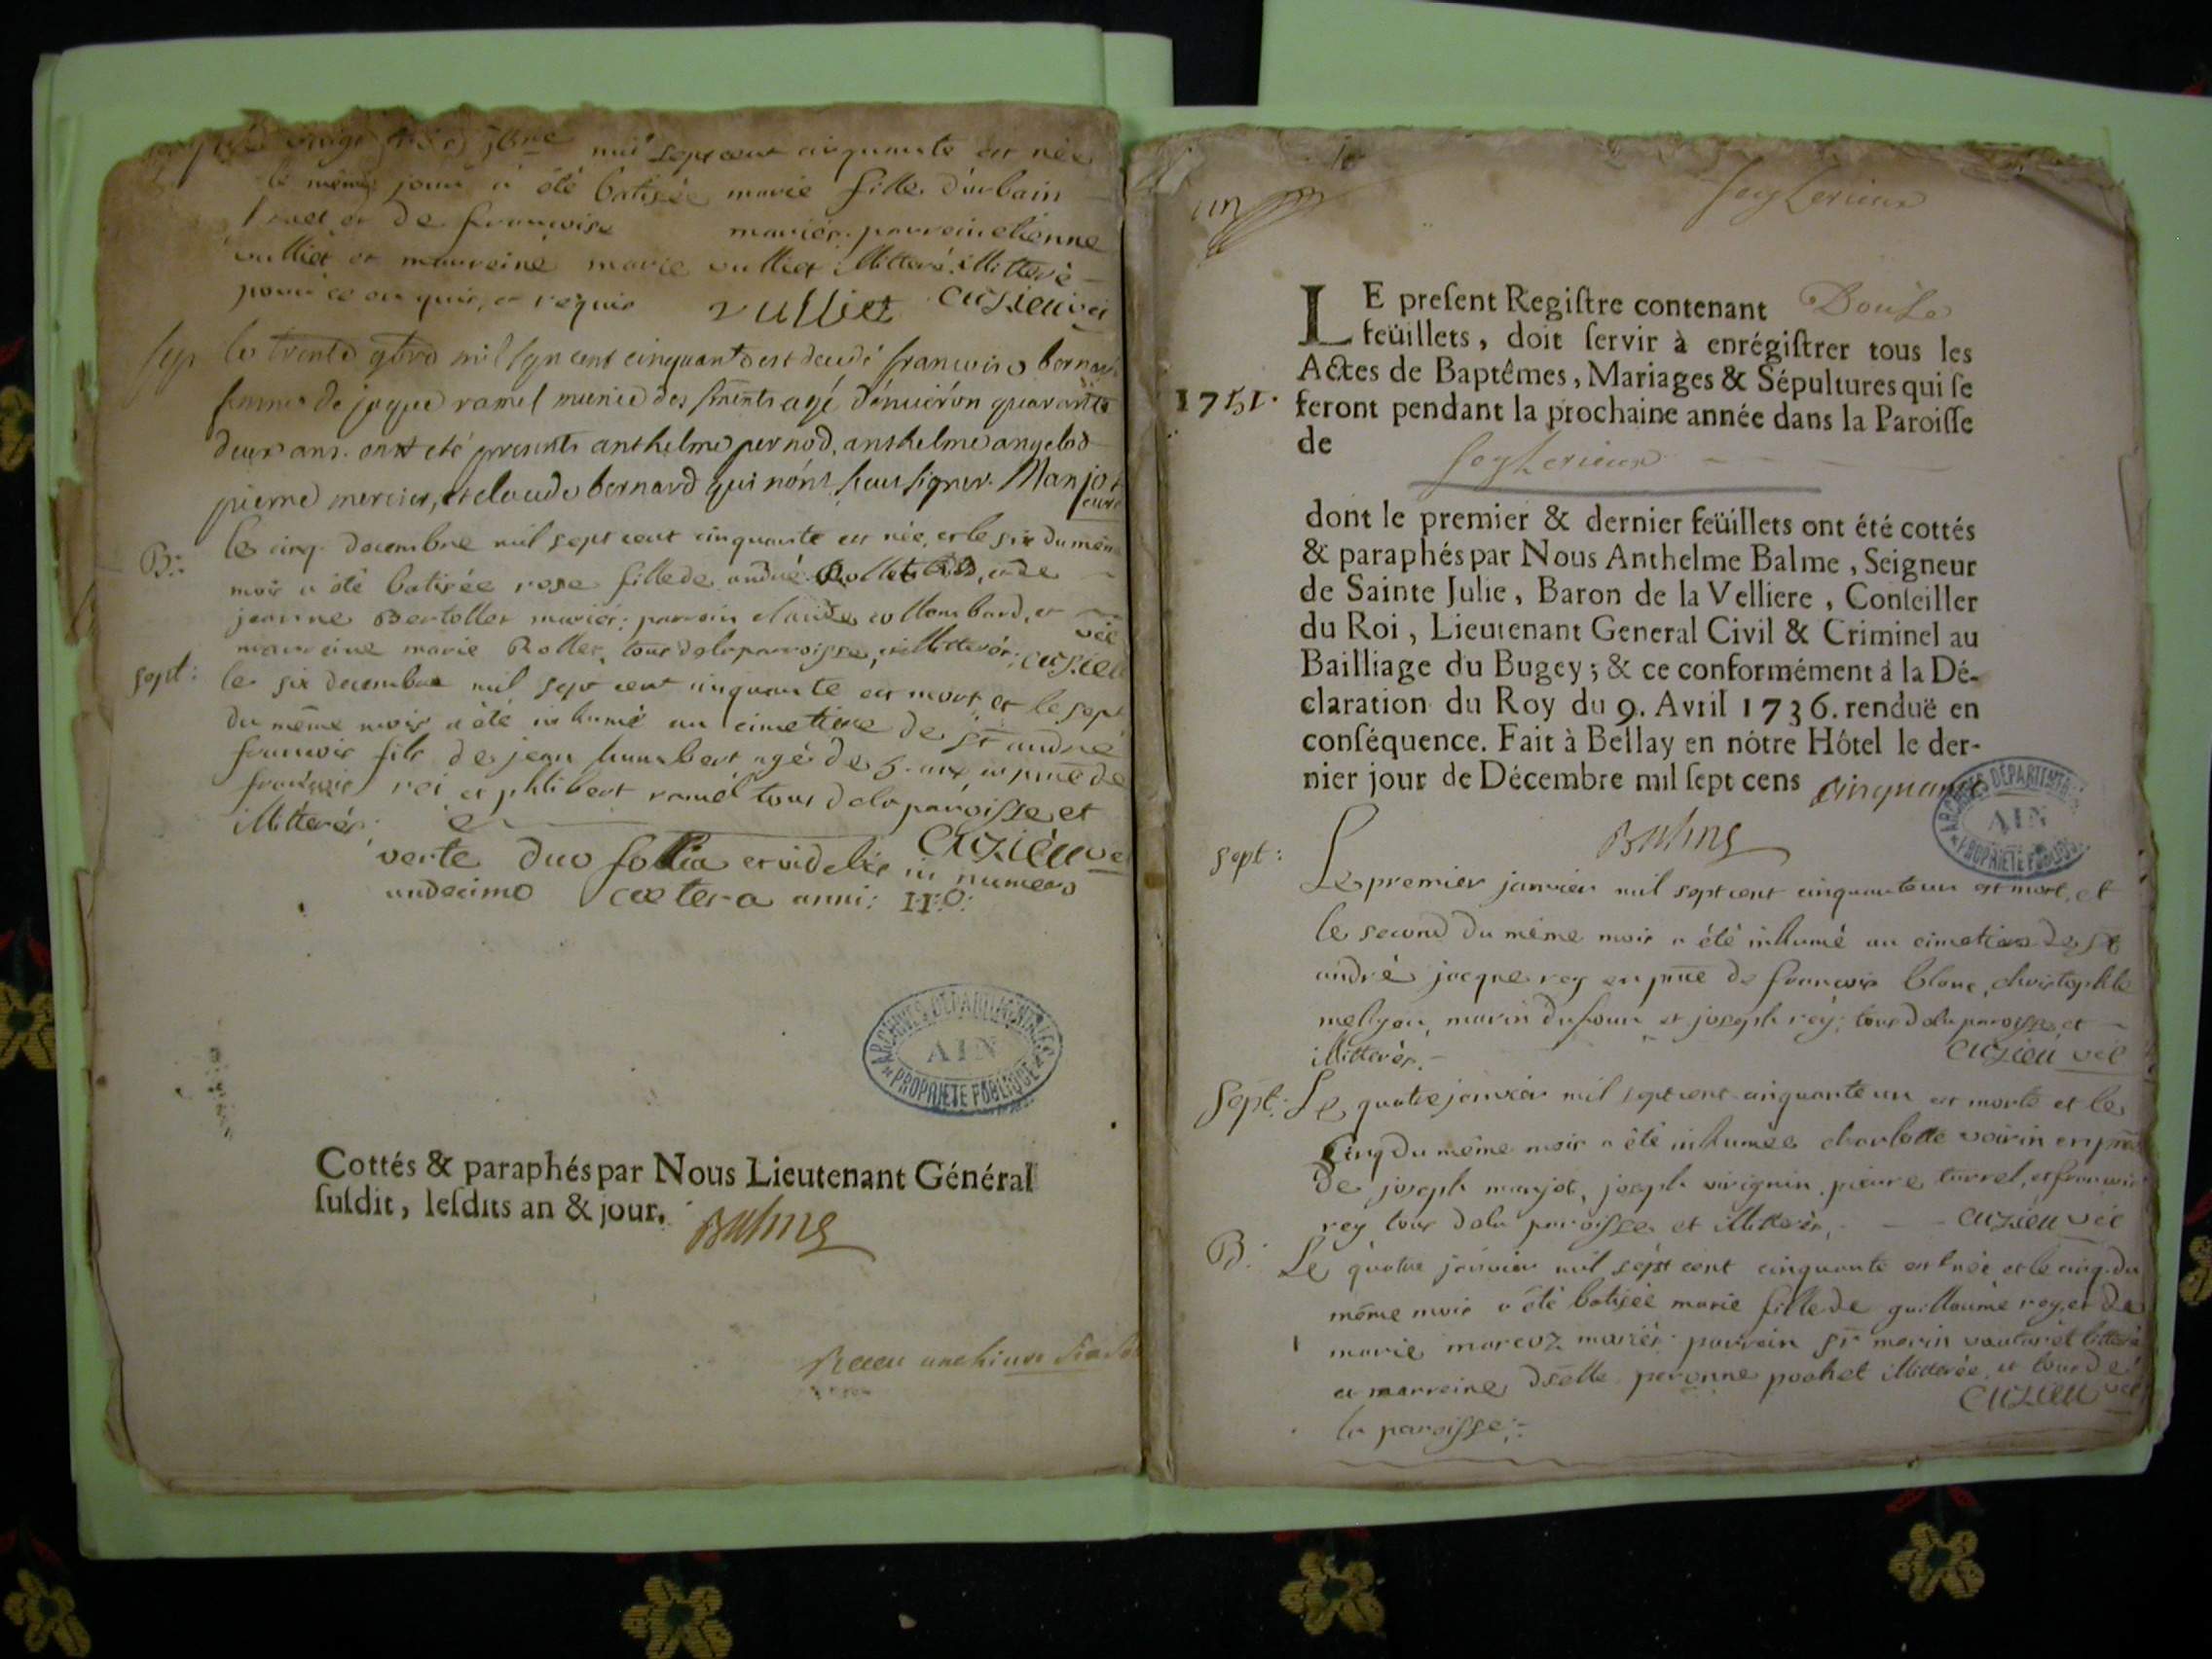 mil sept cent cinquante est née
le même jour a été batisée marie fille d'urbain
et de francoise mariés. parrein etienne
vulliet et marreine marie vulliet illitterée
pour ce enquis, et requis vulliet cuzieu vic
sep le trente mil sept cent cinquante est decedé francoise bernard
femme de jaque ramel munie des agé d'enuiron quarante
deux ans. ont eté presents anthelme pernod, anthelme angelod
pierre mercier, et claude bernard qui n'ont sceu signer. Manjot
curé
B: le cinq decembre mil sept cent cinquante est née, et le six du même
mois a été batisée rose fille de andré et de
jeanne Bertollet mariés: parrein claude collombard, et
marreine marie Rollet, tous de la parroisse, illitterés: cuzieu vic
sept: le six decembre mil sept cent cinquante est mort et le sept
du même mois a été inhumé au cimetiere de st andré
francois fils de jean humbert agé de 5. ans en pnce de
francois rei et philibert ramel tous de la paroisse et
illitterés. cuzieu vic
verte duo folia et videbis in numero
undecimo cætera anni:
ARCHIVES DEPARTEMENTALES
AIN
PROPRIETE PUBLIQUE
Cottés & paraphés par Nous Lieutenant Général
ſuſdit, leſdits an & jour. Balme
un
Seyssérieux
LE preſent Regiſtre contenant Douze
feüillets, doit ſervir à enrégiſtrer tous les
Actes de Baptêmes, Mariages & Sépultures qui ſe
1751. feront pendant la prochaine année dans la Paroiſſe
de
dont le premier & dernier feüillets ont été cottés
& paraphés par Nous Anthelme Balme, Seigneur
de Sainte Julie, Baron de la Velliere, Conſeiller
du Roi, Lieutenant General Civil & Criminel au
Bailliage du Bugey; & ce conformément à la Dé-
claration du Roy du 9. Avril 1736. renduë en
conſéquence. Fait à Bellay en nôtre Hôtel le der-
nier jour de Décembre mil ſept cens cinquante
ARCHIVES DEPARTEMENTALES
AIN
PROPRIETE PUBLIQUE
Balme
sept: Le premier janvier mil sept cent cinquante un est mort, et
le second du même mois a été inhumé au cimetiere de st
andré jacque rey en pnce de francois blanc, christophle
melijon, marin dufour et joseph rey; tous de la paroisse et
illitterés. cuzieu vic
Sept: Le quatre janvier mil sept cent cinquante un est morte et le
cinq du même mois a été inhumée charlotte voirin en pnce
de joseph manjot, joseph virignin, pierre turrel, et francois
rey tous de la paroisse et illitterés. cuzieu vic
B: Le quatre janvier mil sept cent cinquante est née et le cinq du
même mois a été batisée marie fille de guillaume rey, et de
marie marcoz mariés. parrein sr marin vautaret litteré
et marreine dselle peronne pochet illiterée, et tous de
la paroisse. cuzieu vic